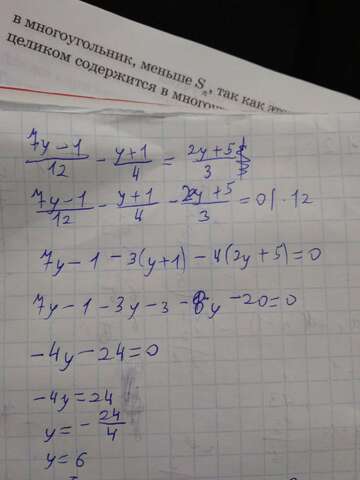 в многоугольник, меньше Sₙ, так как эт
целиком содержится в многоу
7y-1/12 - y+1/4 = 2y+5/3
7y-1/12 - y+1/4 - 2y+5/3 = 0 | · 12
7y - 1 - 3(y+1) - 4(2y+5) = 0
7y - 1 - 3y - 3 - 8y - 20 = 0
-4y - 24 = 0
-4y = 24
y = - 24/4
y = 6